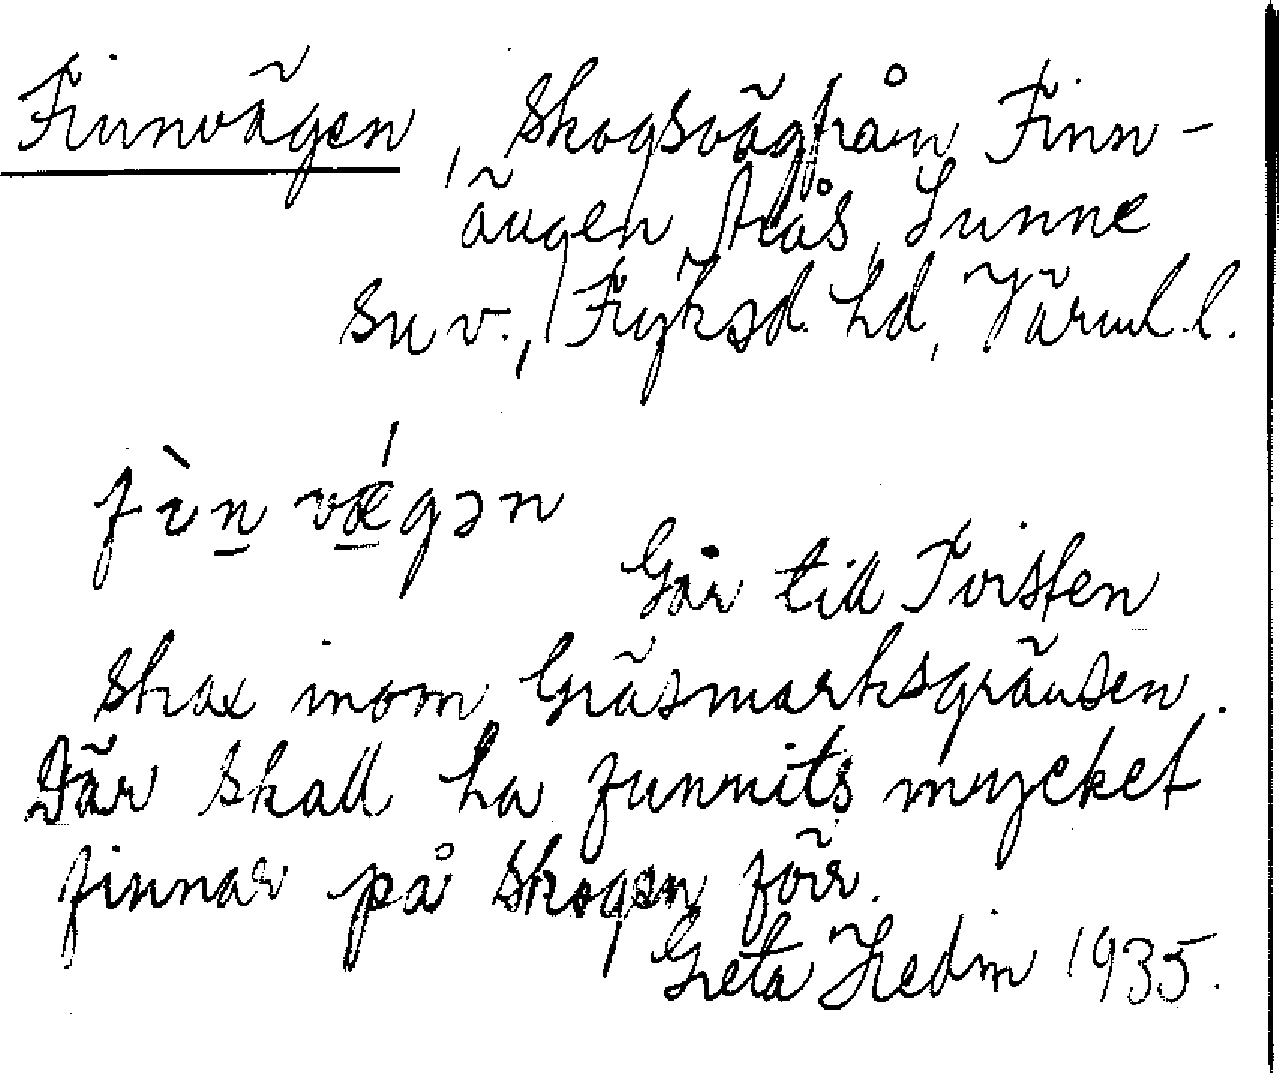 Finnvägen, skogsväg från Finn-
ängen, Ivås, Sunne
sn v., Fryksd. hd, Värml. l.
fìn̲ vǽ̲gən
Går till Tvisten
strax inom Gräsmarksgränsen.
Där skall ha funnits mycket
finnar på skogen förr.
Greta Hedin 1935.